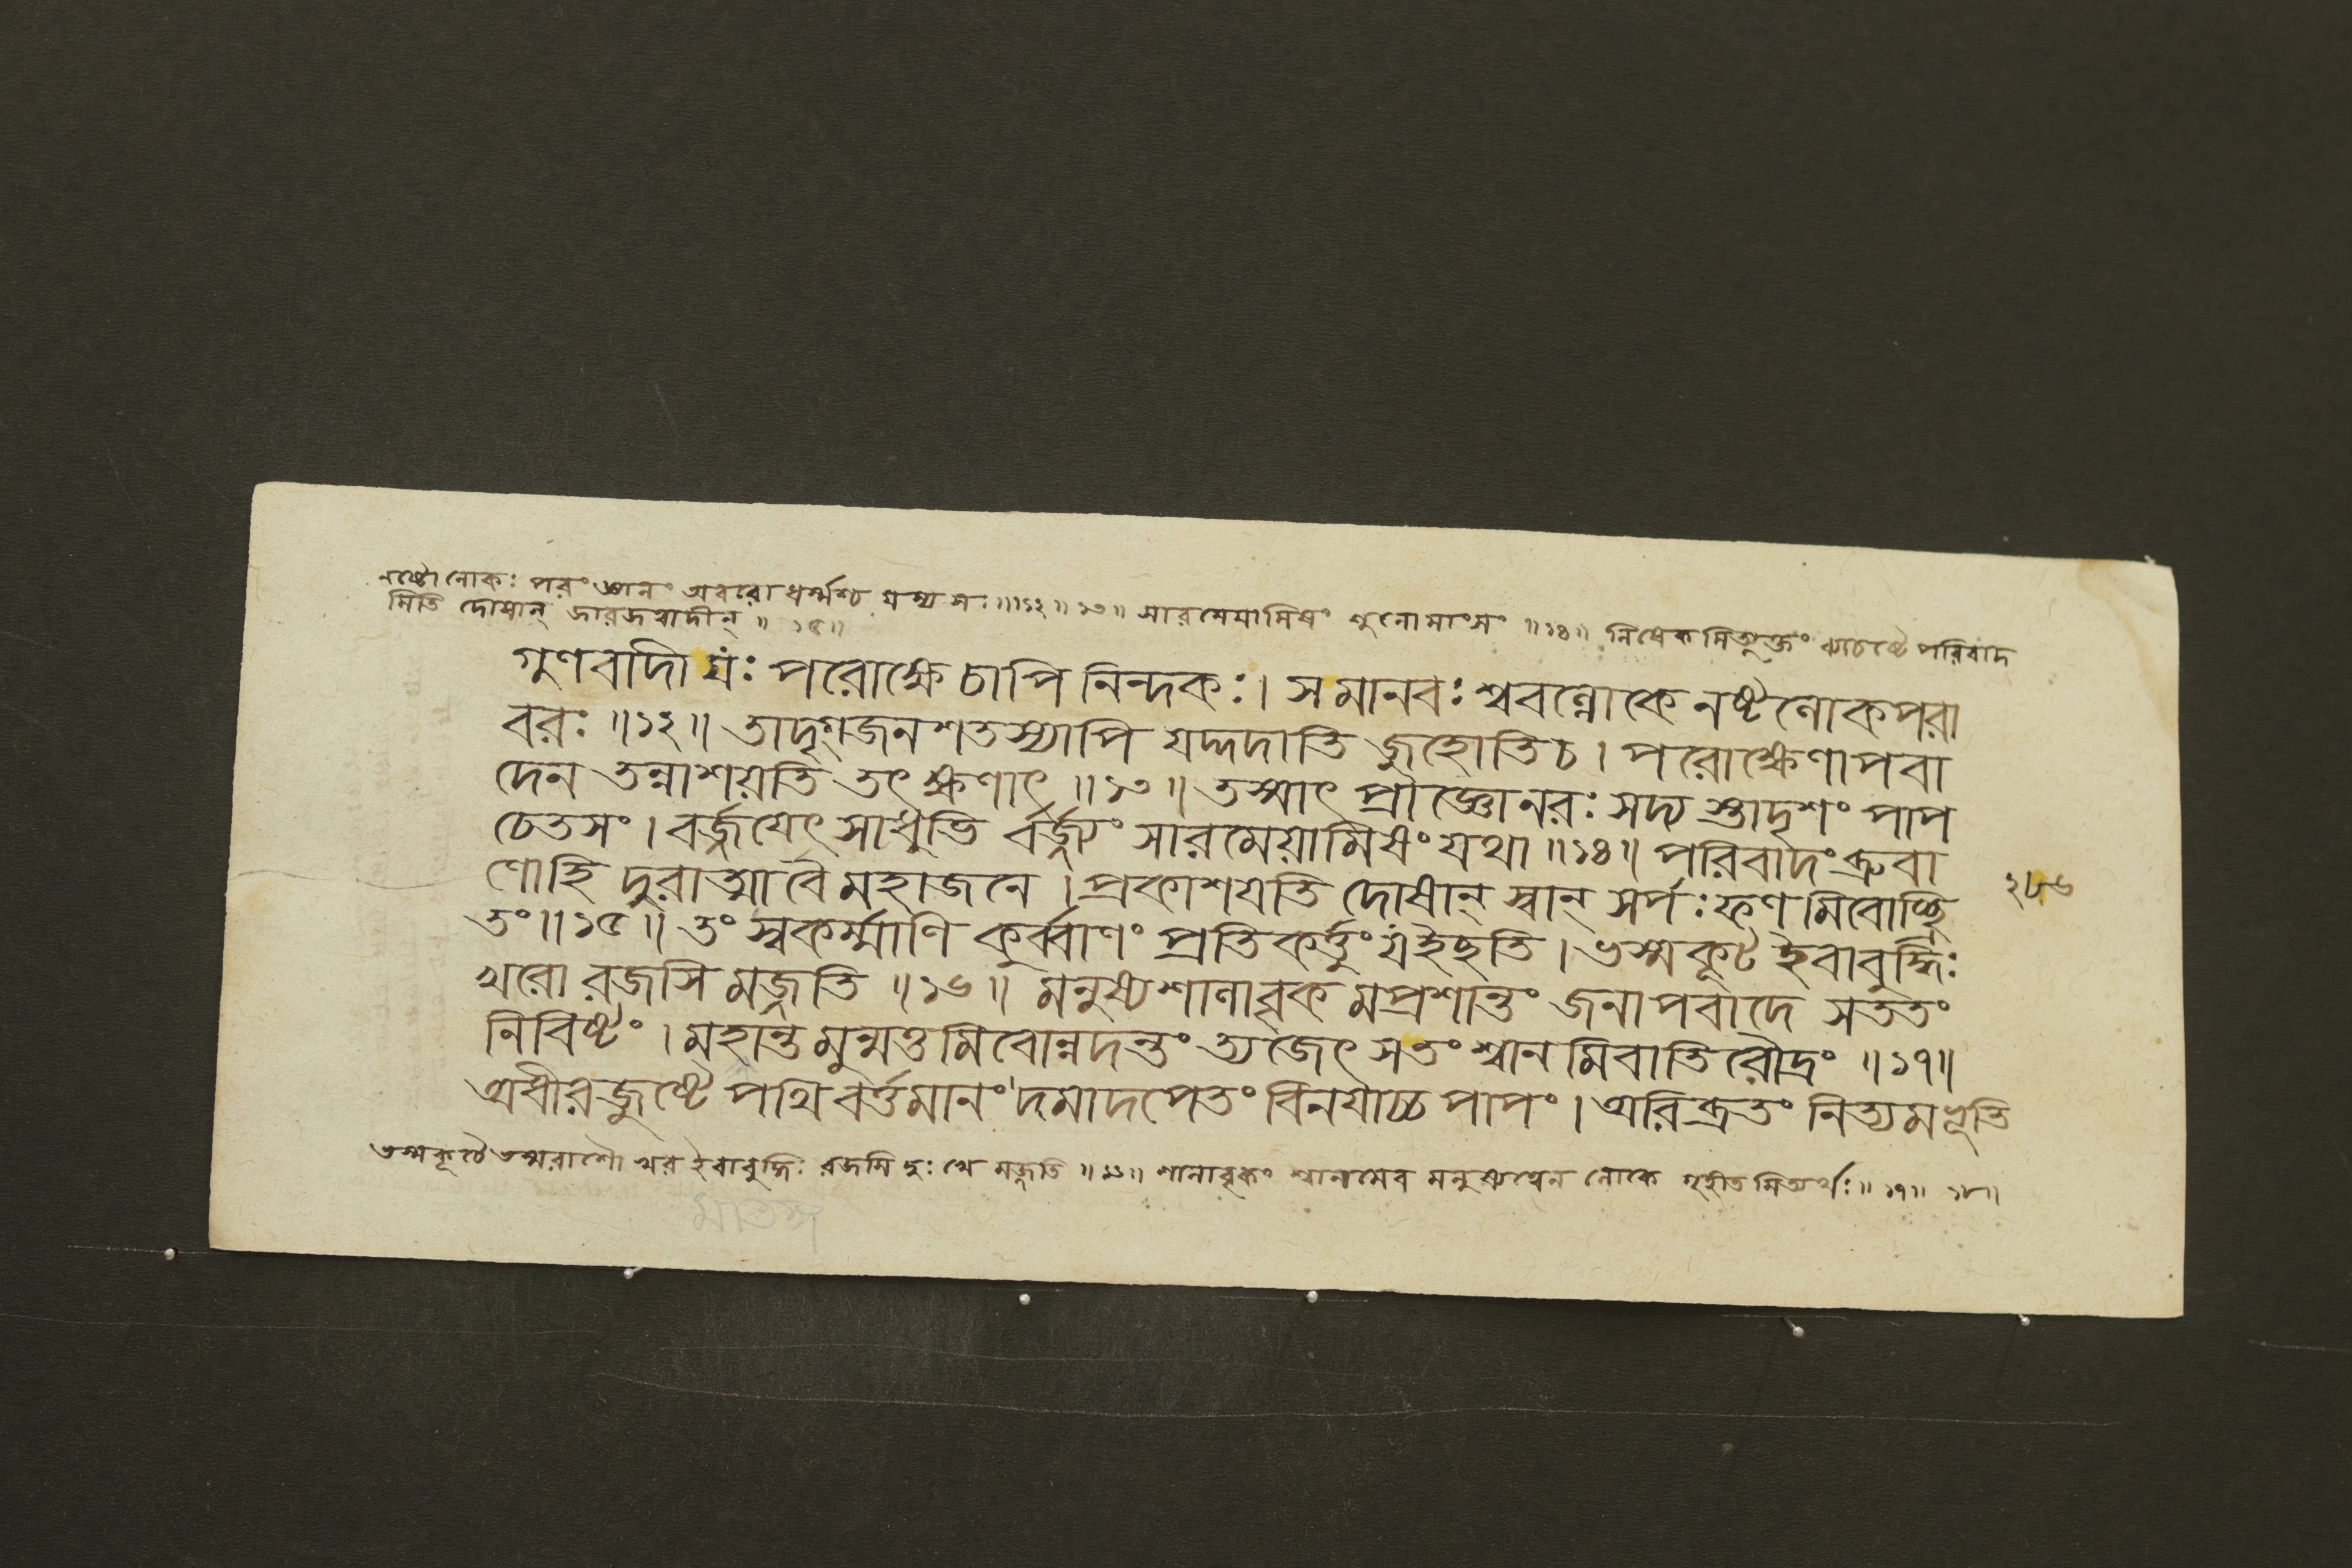 নষ্টো লোকঃ পরং জ্ঞানং অবরো ধর্ম্মশ্চ যস্য সঃ॥১২॥১৩॥ সারমেয়ামিষং শুনো মাংসং ॥১৪॥ নিষেকমিত্যুক্তং ব্যাচষ্টে পরিবাদ
মিতি দোষান্ জারজত্বাদীন্ ॥ ১৫॥
গুণবাদী যঃ পরোক্ষে চাপি নিন্দকঃ। স মানবঃ শ্ববল্লোকে নষ্টলোকপরা
বরঃ ॥১২॥ তাদৃগ্জনশতস্যাপি যদ্দদাতি জুহোতি চ। পরোক্ষেণাপবা
দেন তন্নাশয়তি তৎ ক্ষণাৎ ॥১৩॥ তস্মাৎ প্রাজ্ঞো নরঃ সদ্য স্তাদৃশং পাপ
চেতসং। বর্জ্জয়েৎ সাধুভি র্বর্জ্জ্যং সারমেয়ামিষং যথা ॥১৪॥ পরিবাদং ব্রুবা
ণো হি দুরাত্মা বৈ মহাজনে। প্রকাশয়তি দোষান্ স্বান্ সর্পঃ ফণমিবোচ্ছ্রি
তং॥১৫॥ তং স্বকর্ম্মাণি কুর্ব্বাণং প্রতিকর্ত্তুং য ইছতি। ভস্মকূট ইবাবুদ্ধিঃ
খরো রজসি মজ্জতি ॥১৬॥ মনুষ্যশালাবৃকমপ্রশান্তং জনাপবাদে সততং
নিবিষ্টং। মহান্তমুন্মত্তমিবোন্নদন্তং ত্যজেৎ সতং শ্বানমিবাতিরৌদ্রং ॥১৭॥
অধীরজুষ্টে পথি বর্ত্তমানং দমাদপেতং বিনয়াচ্চ পাপং। অরিব্রতং নিত্যমভূতি
২৮৬
ভস্মকূটে ভস্মরাশৌ খর ইবাবুদ্ধিঃ রজসি দুঃখে মজ্জতি ॥১৬॥ শালাবৃকং শ্বানমেব মনুষ্যত্বেন লোকে গৃহীতমিত্যর্থঃ॥১৭॥ ১৮॥
মাতঙ্গ